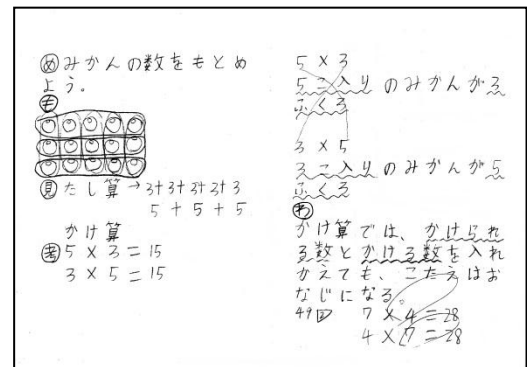 めみかんの数をもとめ
よう。
も
見たし算→3+3+3+3+3
5+5+5
かけ算
考5×3=15
3×5=15
5×3
5こ入りのみかんが3
ふくろ
3×5
3こ入りのみかんが5
ふくろ
わ
かけ算では、かけられ
る数とかける数を入れ
かえても、こたえはお
なじになる。
49② 7×4=28
4×7=28